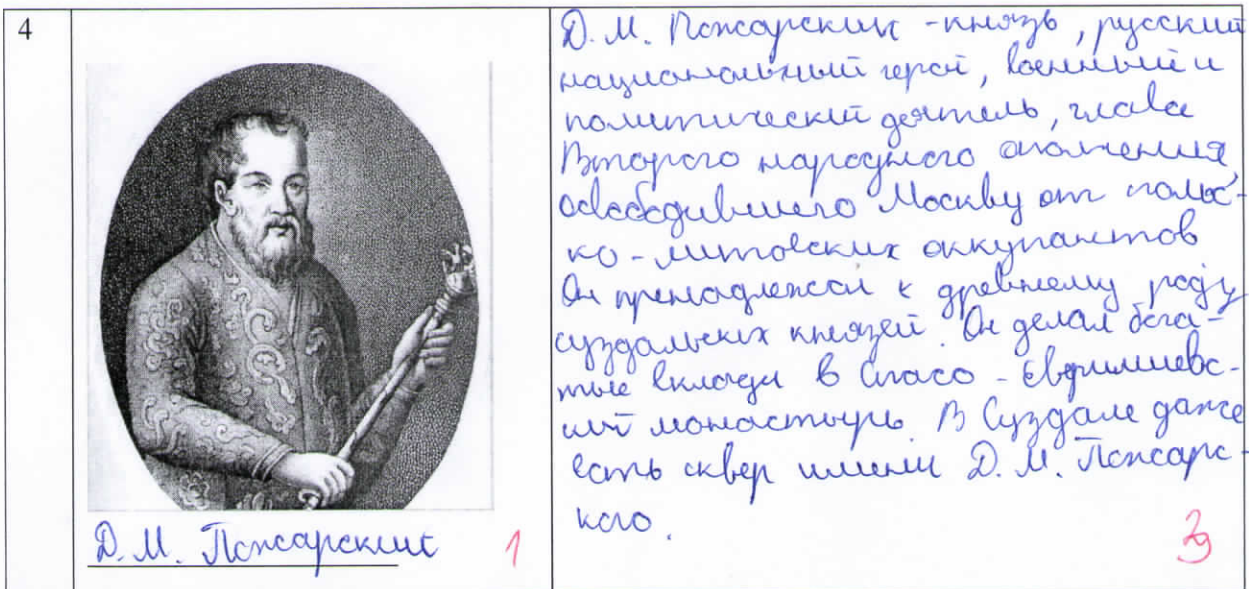 4
Д. М. Пожарский
1
Д. М. Пожарский - князь, русский
национальный герой, военный и
политический деятель, глава
Второго народного ополчения,
освободившего Москву от польс-
ко-литовских оккупантов
Он пренадлежал к древнему роду
суздальских князей. Он делал бога-
тые вклады в Спасо-Евфимиевс-
кий монастырь. В Суздале даже
есть сквер имени Д. М. Пожарс-
кого.